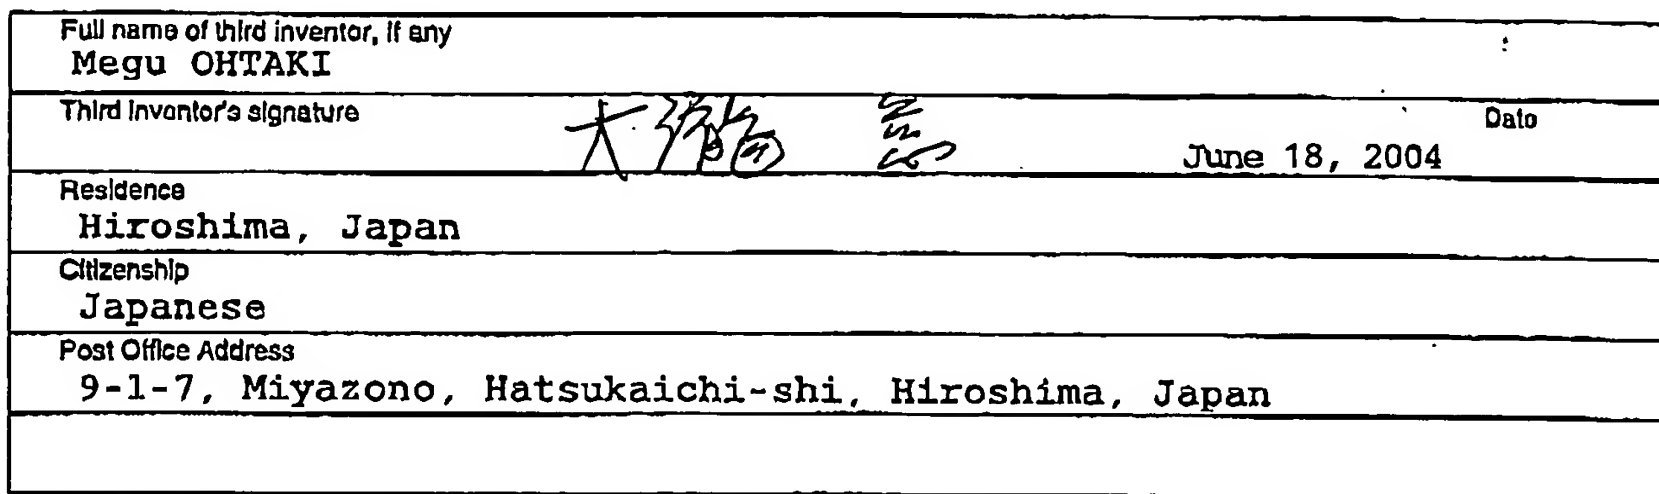 Full name of third inventor, if any
Megu OHTAKI
Third inventor's signature
大瀧 慈
Date
June 18, 2004
Residence
Hiroshima, Japan
Citizenship
Japanese
Post Office Address
9-1-7, Miyazono, Hatsukaichi-shi, Hiroshima, Japan